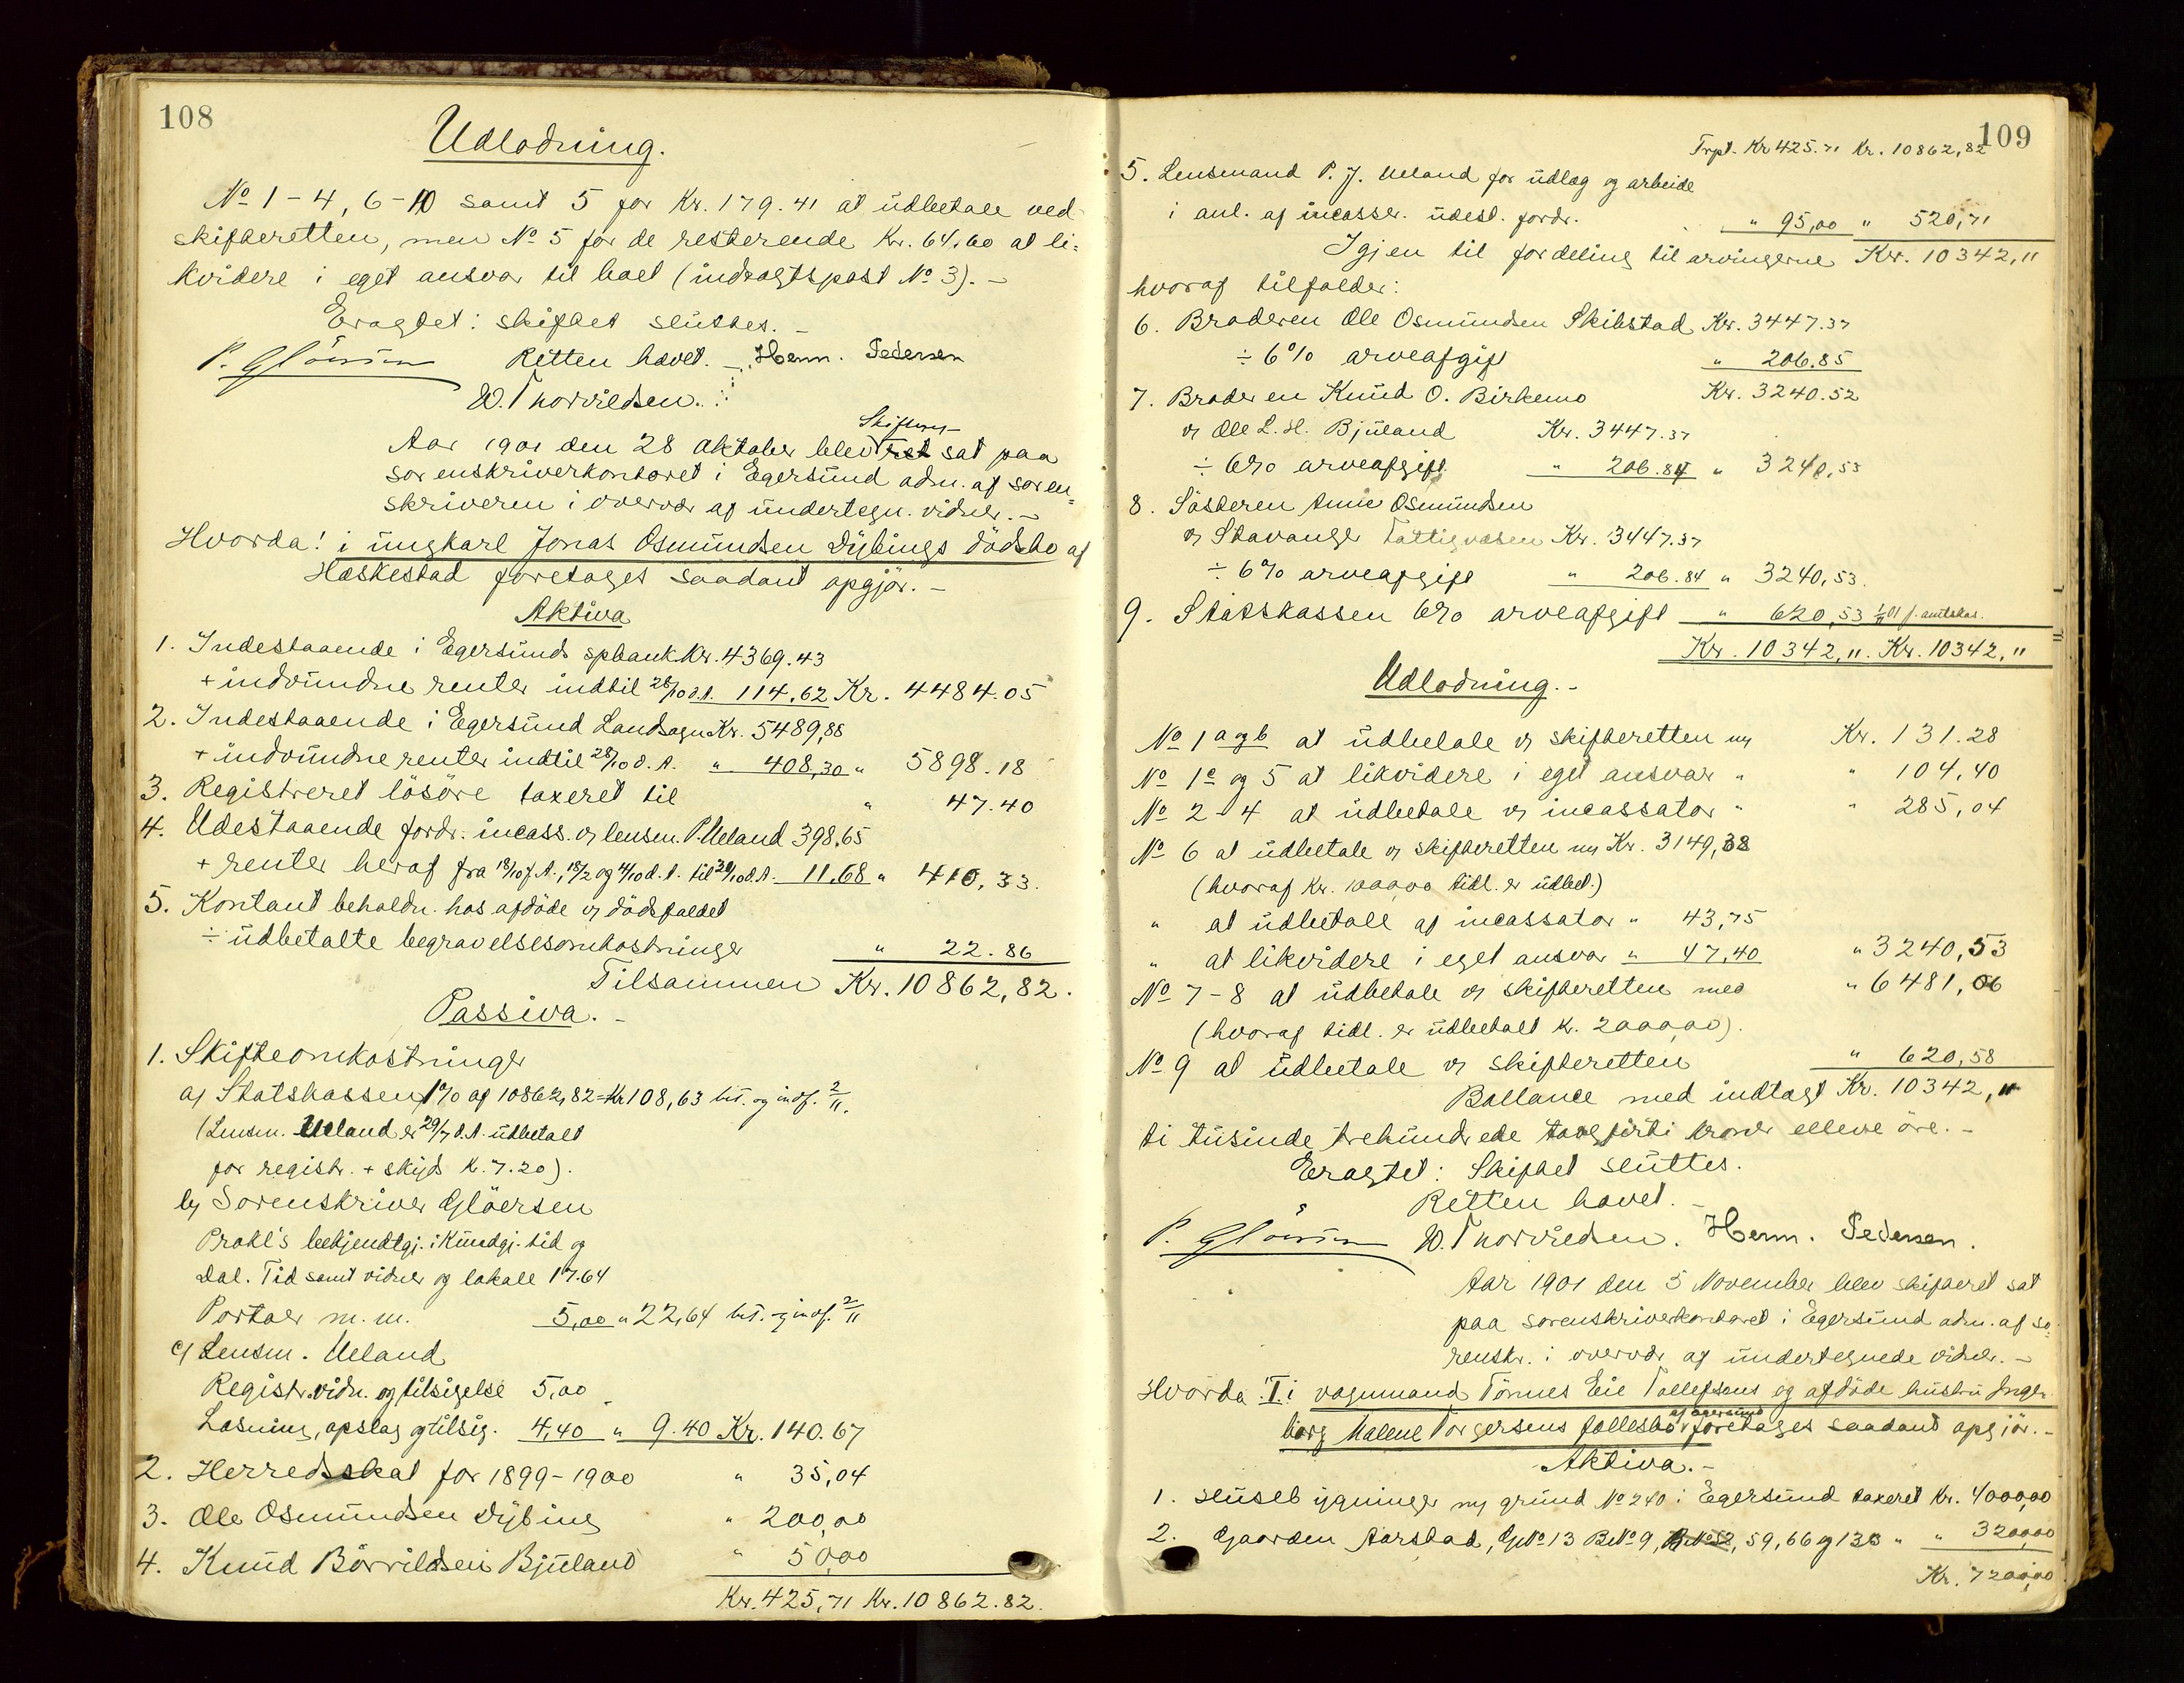 108
Udlodning.
No 1-4, 6-10 samt 5 for Kr. 179.41 at üdbetale ved
skifteretten, men No 5 for de resterende Kr. 64,60 at li=
kvidere i eget ansvar til boet (indtægtspost No 3). -
Eragtet: skiftet sluttes. -
P. Gløersen Retten hævet. - Herm. Pedersen
W. Thorvildsen.
Skifteret
Aar 1901 den 28 Oktober blev ret sat paa
sorenskriverkontoret i Egersünd adm. af soren=
skriveren i overvær af ündertegn. vidner. -
Hvorda! i üngkarl Jonas Osmündsen Dÿbings dödsbo af
Heskestad foretages saadant opgjör. -
Aktiva
1. Indestaaende i Egersünds spbank Kr. 4369.43
+ indvündne renter indtil 28/10 d.A. 114,62 Kr. 4484.05
2. Indestaaende i Egersünd Landsogn Kr. 5489,88
+ indvündne renter indtil 28/10 d.A. " 408,30 " 5898.18
3. Registreret lösöre taxeret til " 47.40
4. Udestaaende fordr. incass. v lensm. P. Ueland 398,65
+ renter heraf fra 18/10 f.A., 18/2 og 4/10 d.A. til 28/10 d.A. 11.68 " 410,33.
5. Kontant beholdn. hos afdöde v dödsfaldet
÷ üdbetalte begravelsesomkostninger " 22.86
Tilsammen Kr. 10862,82.
Passiva. -
1. Skifteomkostninger
a) Statskassen 1% af 10862,82 = Kr 108,63 bet. og indf. 2/11.
(Lensm. Ueland er 29/7 d.A. üdbetalt
for registr. + skyds K. 7.20).
b) Sorenskriver Glöersen
Prokl's bekjendtgj. i Kündgj. tid og
Dal. Tid samt vidner og lokale 17.64
Portoer m.m. 5,00 " 22,64 bet. og indf. 2/11
c) Lensm. Ueland
Registr. vidn. og tilsigelse 5,00
Læsning, opslag og tilsig. 4,40 " 9.40 Kr. 140.67
2. Herredsskat for 1899-1900 " 35,04
3. Ole Osmündsen Dÿbing " 200,00
4. Knüd Börrildsen Bjüland " 50,00
Kr. 425,71 Kr. 10862.82.
109
Trpt. Kr 425.71 Kr. 10862,82
5. Lensmand P. J. Ueland for üdlæg og arbeide
i anl. af incasser. üdest. fordr. " 95,00 " 520,71
Igjen til fordeling til arvingerne Kr. 10342,11
hvoraf tilfalder:
6. Broderen Ole Osmündsen Skibstad Kr. 3447.37
÷ 6% arveafgift " 206.85
Kr. 3240.52
7. Broderen Knüd O. Birkemo
v Ole L. H. Bjüland Kr. 3447.37
÷ 6% arveafgift " 206.84 " 3240,53
8. Sösteren Anne Osmündsen
v Stavanger Fattigvæsen Kr. 3447.37
÷ 6% arveafgift " 206.84 " 3240,53.
9. Statskassen 6% arveafgift " 620,53 f. amtskas.
Kr. 10342,11. Kr. 10342,11
Udlodning. -
No 1 a og b at üdbetale v skifteretten m Kr. 131.28
No 1 c og 5 at likvidere i eget ansvar " " 104,40
No 2-4 at üdbetale v incassator " " 285,04
No 6 at üdbetale v skifteretten m Kr. 3149,38
(hvoraf Kr. 1000,00 tidl. er üdbet.)
" at üdbetale af incassator " 43,75
" at likvidere i eget ansvar " 47,40 " 3240,53
No 7-8 at üdbetale v skifteretten med " 6481,06
(hvoraf tidl. er üdbetalt K. 2000,00).
No 9 at üdbetale v skifteretten " 620,58
Ballance med indtægt Kr. 10342,11
ti tüsinde trehündrede to og förti kroner elleve öre. -
Eragtet: Skiftet slüttes.
Retten hævet. -
P. Gløersen W. Thorvildsen. Herm. Pedersen.
Aar 1901 den 5 November blev skifteret sat
paa sorenskriverkontoret i Egersünd adm. af so
renskr. i overvær af ündertegnede vidner. -
Hvorda I i vognmand Tönnes Eie Tollefsens og afdöde hüstrü Inge
borg Malene Torgersens fællesbo af Egersünd foretages saadant opgjör. -
Aktiva. -
1. Hüsebÿgninger m gründ No 240 i Egersünd taxeret Kr. 4000,00
2. Gaarden Aarstad, GNo 13 BNo 9, 59, 66 og 133 " " 3200,00
Kr. 7200,00